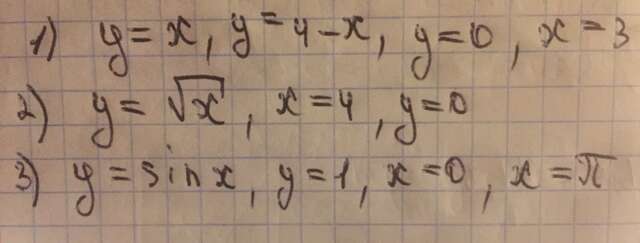 1) y = x, y = 4 - x, y = 0, x = 3
2) y = √x, x = 4, y = 0
3) y = sin x, y = 1, x = 0, x = π